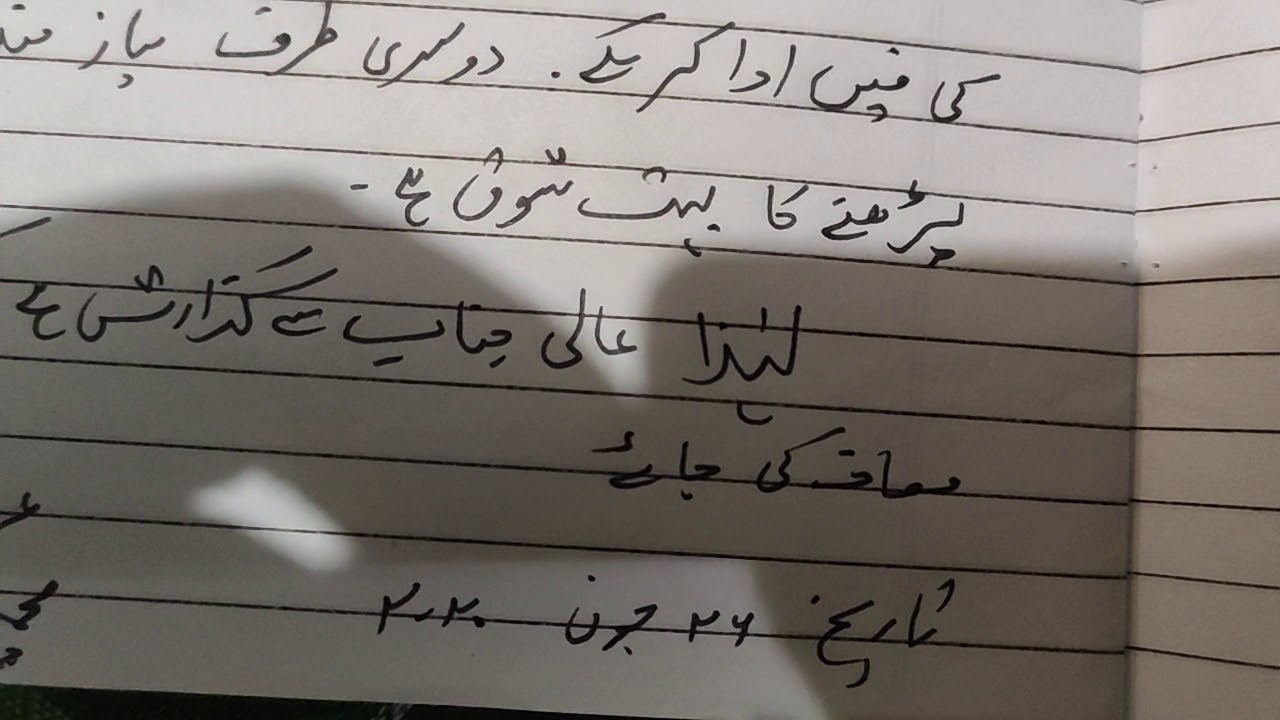 کی فیس ادا کر سکے. دوسری طرف نیاز
پڑھنے کا بہت شوق ہے -
لہذا عالی جناب سے گذارش ہے
معاف کی جائے
تاریخ ۲۶ جون ۲۰۲۰